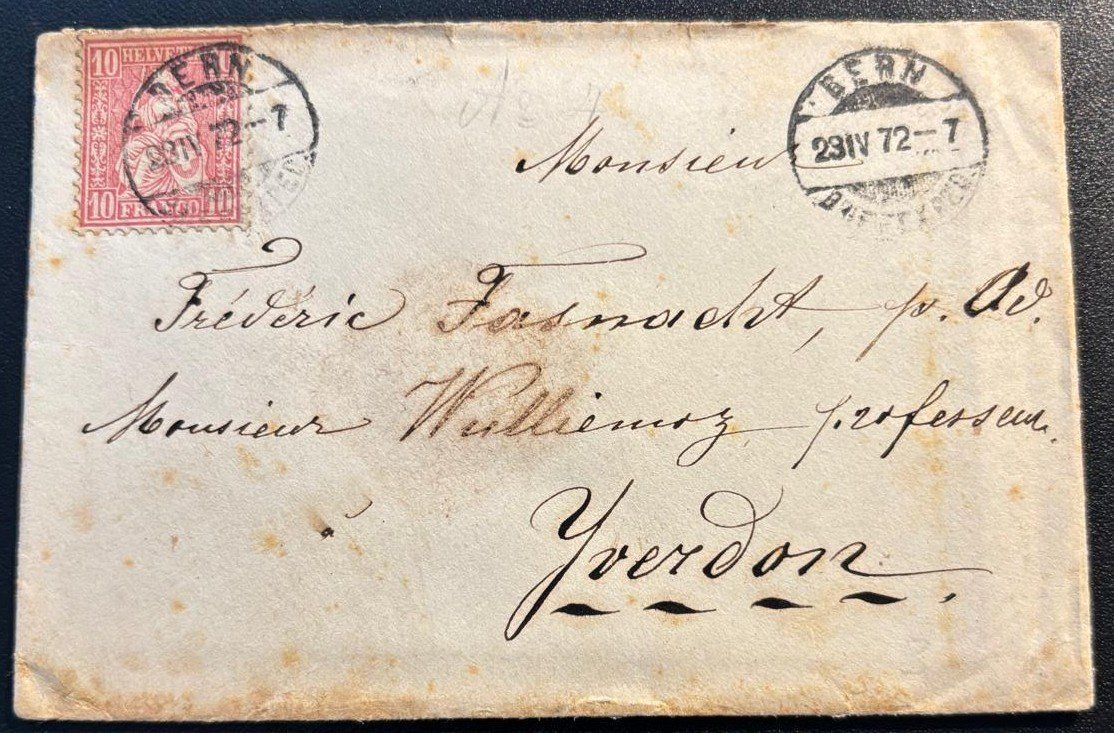 10 HELVETIA
10 FRANCO 10
BERN
23 IV 72-7
BERN
23 IV 72-7
BRF. EXPED.
Monsieur
Frédéric Fasnacht, p. Ad.
Monsieur Wulliemoz, professeur.
Yverdon.